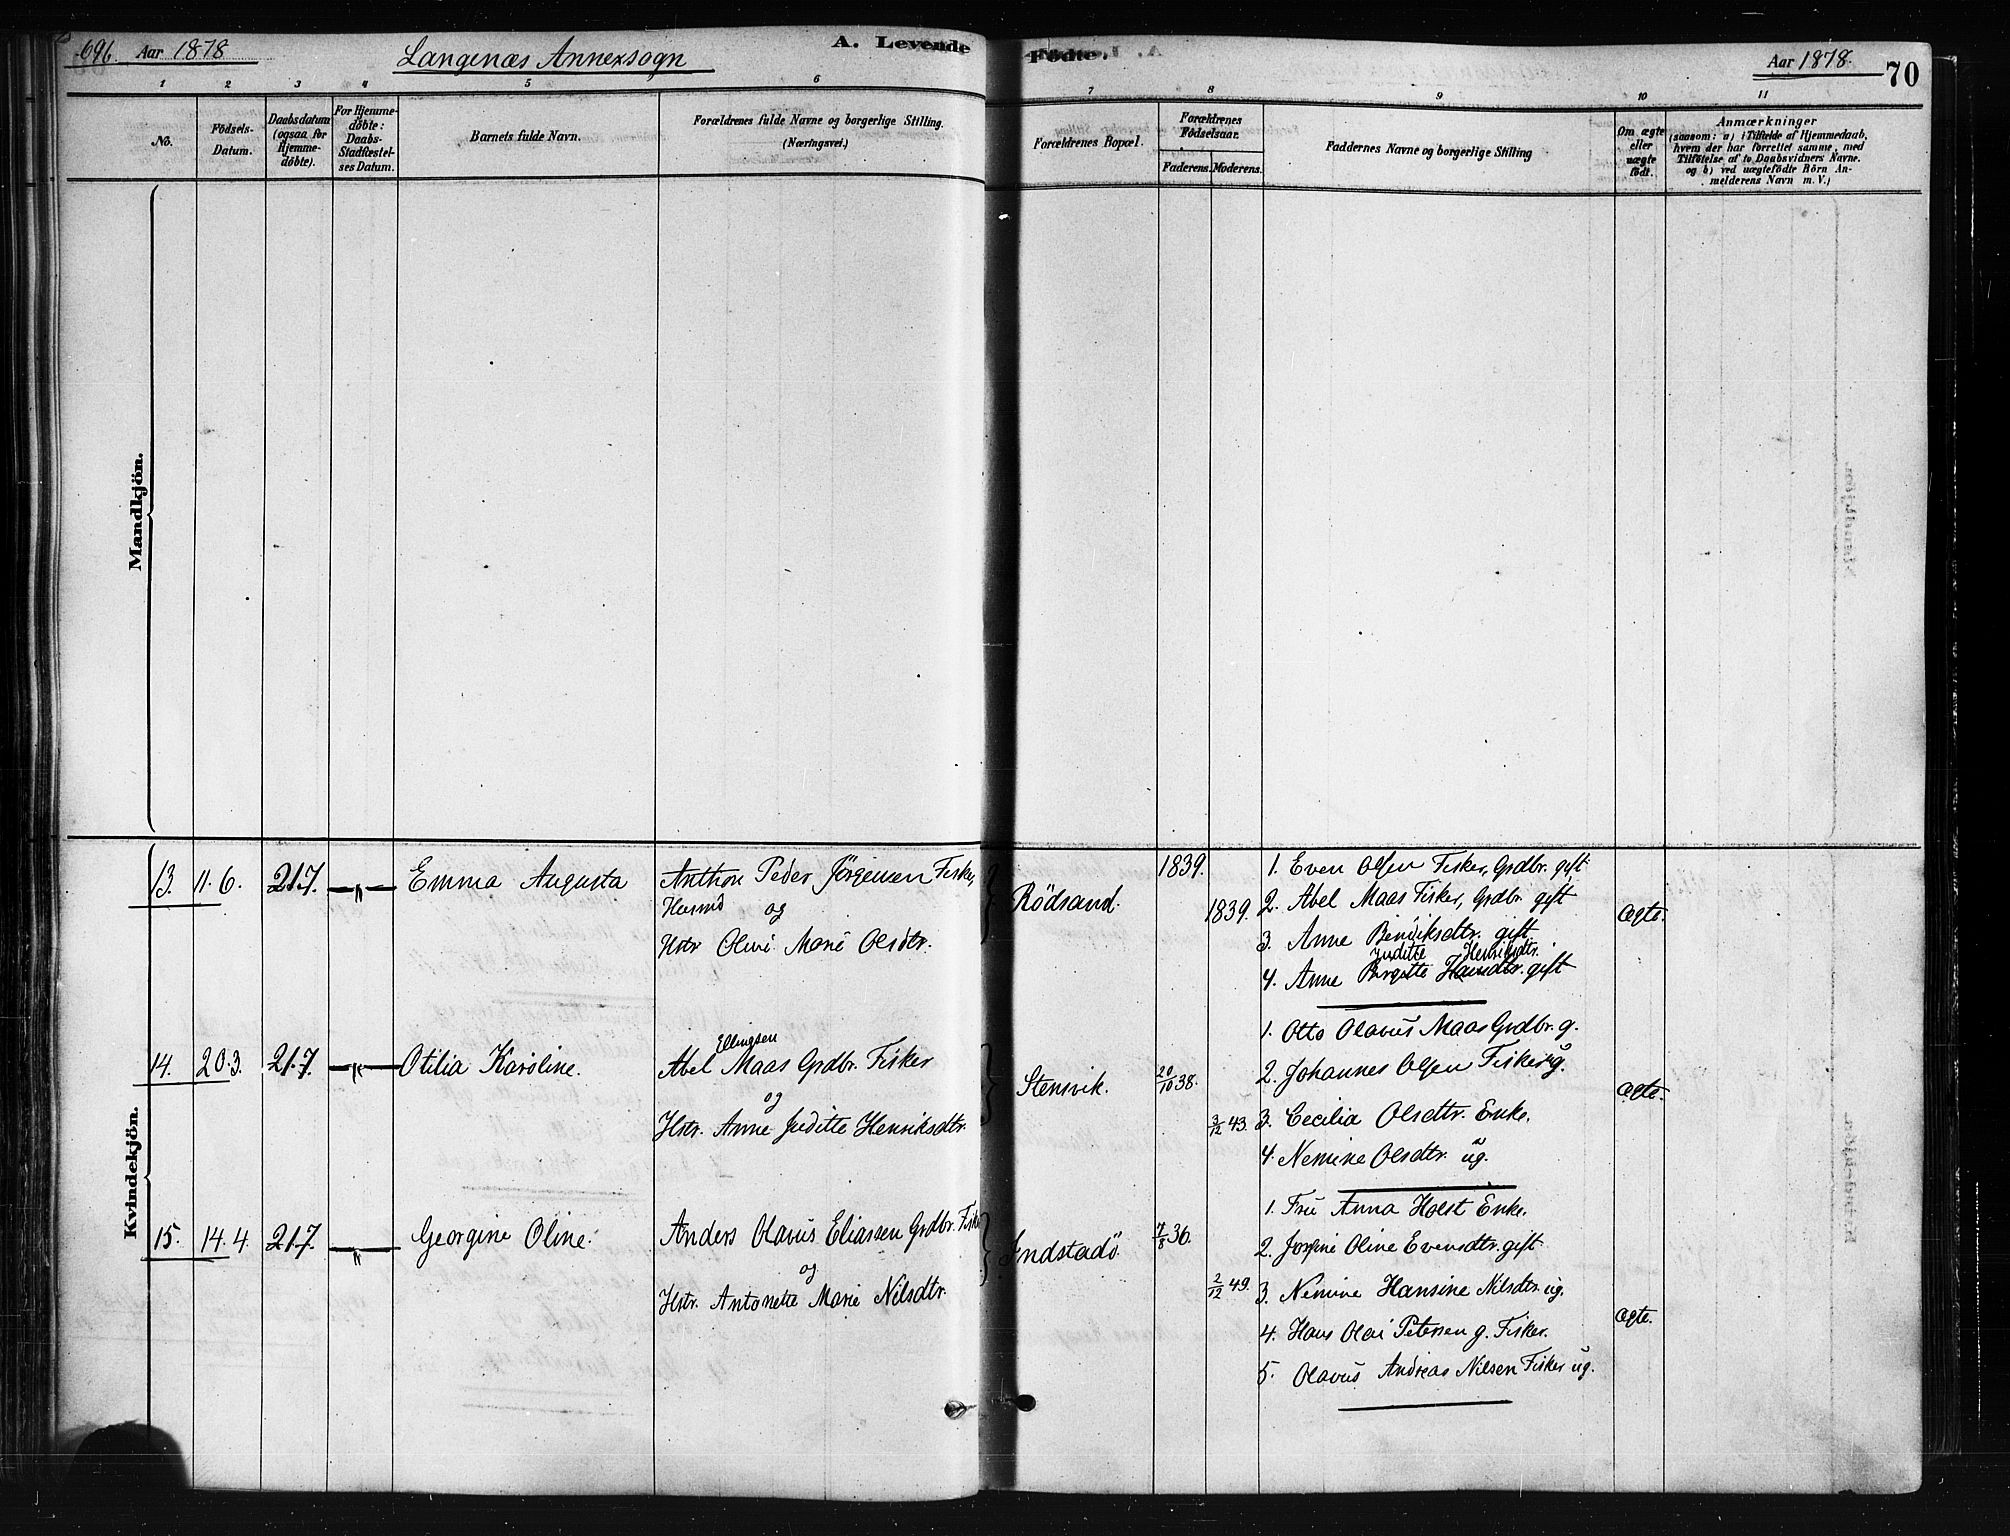 696. Aar 1878
Langenæs Annexsogn
A. Levende Födte.
Aar 1878.
70
1 2 3 4 5 6 7 8 9 10 11
No.
Födsels-
Datum.
Daabsdatum
(ogsaa for
Hjemme-
döbte).
For Hjemme-
döbte:
Daabs-
Stadfæstel-
ses Datum.
Barnets fulde Navn.
Forældrenes fulde Navne og borgerlige Stilling.
(Næringsvei.)
Forældrenes Bopæl.
Forældrenes
Födselsaar.
Faderens. Moderens.
Faddernes Navne og borgerlige Stilling
Om ægte
eller
uægte
födt.
Anmærkninger
(saasom: a) i Tilfælde af Hjemmedaab,
hvem der har forrettet samme, med
Tilföielse af to Daabsvidners Navne.
og b) ved uægtefödte Börn An-
melderens Navn m. V.)
Mandkjön.
Kvindekjön.
13. 11.6. 21.7. —"— Emma Augusta
Anthon Peder Jörgensen Fisker,
Husmd og
Hstr. Oline Marie Olsdtr.
Rödsand.
1839.
1839.
1. Even Olsen Fisker, Grdbr. gift
2. Abel Maas Fisker, Grdbr. gift
3. Anne Bendiksdtr. gift
Juditte Henriksdtr.
4. Anne Birgitte Hansdtr. gift
Ægte.
14. 20.3. 21.7. —"— Otilia Karoline.
Ellingsen
Abel Maas Grdbr. Fisker
og
Hstr. Anne Juditte Henriksdtr.
Stensvik.
20/10 38.
3/12 43.
1. Otto Olavus Maas Grdbr. g.
2. Johannes Olsen Fisker ug.
3. Cecilia Olsdtr. Enke.
4. Nemine Olsdtr. ug.
Ægte.
15. 14.4. 21.7. —"— Georgine Oline.
Anders Olavus Eliassen Grdbr. Fisker
og
Hstr. Antonette Marie Nilsdtr.
Indstadö.
7/8 36.
2/12 49.
1. Fru Anna Holst Enke.
2. Josfine Oline Evensdtr. gift
3. Nemine Hansine Nilsdtr. ug.
4. Hans Olai Petersen g. Fisker.
5. Olavus Andreas Nilsen Fisker ug.
Ægte.